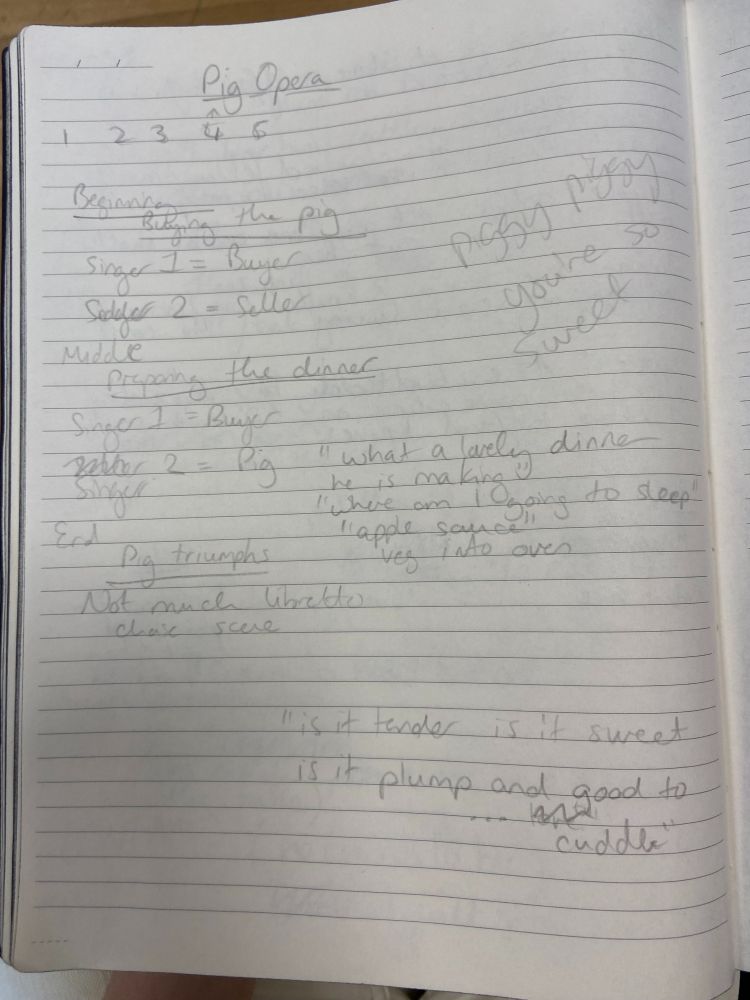 Pig Opera
1 2 3 4 5
Beginning
Buying the pig
Singer 1 = Buyer
2 = Seller
piggy piggy
you're so
sweet
Middle
Preparing the dinner
Singer 1 = Buyer
Singer 2 = Pig "what a lovely dinner
he is making"
"where am I going to sleep"
"apple sauce"
veg into oven
End
Pig triumphs
Not much libretto
chase scene
"is it tender is it sweet
is it plump and good to
...
cuddle"